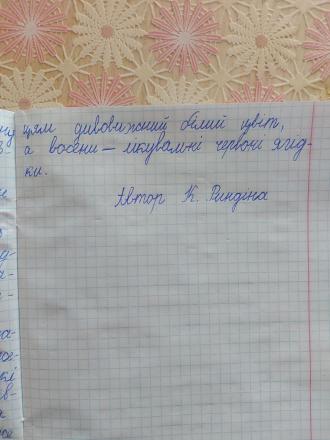 цям дивовижний білий цвіт,
а восени — лікувальні червоні ягід-
ки.
Автор К. Риндіна